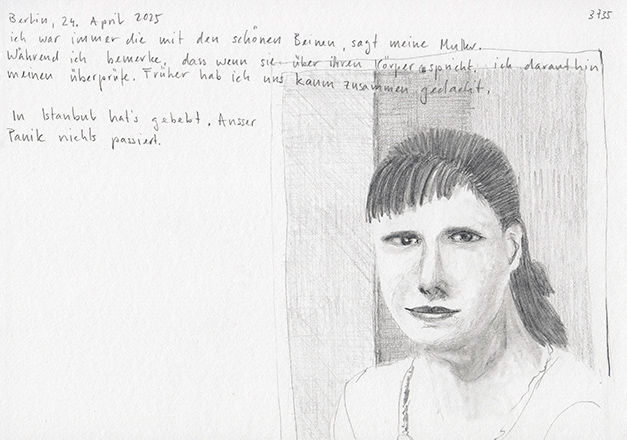 Berlin, 24. April 2025
3735
ich war immer die mit den schönen Beinen, sagt meine Mutter.
Während ich bemerke, dass wenn sie über ihren Körper spricht, ich daraufhin
meinen überprüfe. Früher hab ich uns kaum zusammen gedacht.
In Istanbul hat's gebebt. Ausser
Panik nichts passiert.